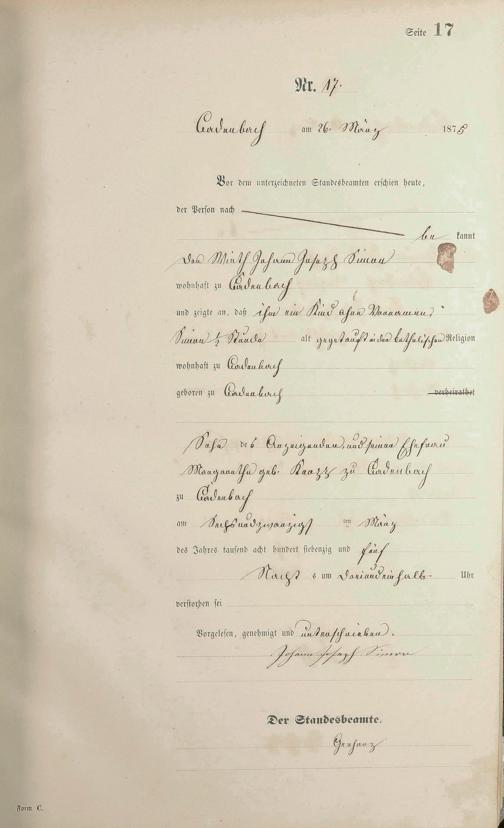 Seite 17
Nr. 17.
Cadenbach am 26. März 1875
Vor dem unterzeichneten Standesbeamten erschien heute,
der Person nach
be kannt
den Wirth Johann Joseph Simon
wohnhaft zu Cadenbach
und zeigte an, daß ihm ein Kind ohne Vornamen,
Simon ½ Stunde alt getauft in der katholischen Religion
wohnhaft zu Cadenbach
geboren zu Cadenbach verheirathet
Sohn des Anzeigenden, und seiner Ehefrau
Margaretha geb. zu Cadenbach
zu Cadenbach
am Sechsundzwanzigst en März
des Jahres tausend acht hundert siebenzig und fünf
Nacht s um dreiundeinhalb Uhr
verstorben sei
Vorgelesen, genehmigt und unterschrieben.
Johann Joseph Simon
Der Standesbeamte.
Gerharz
Form C.